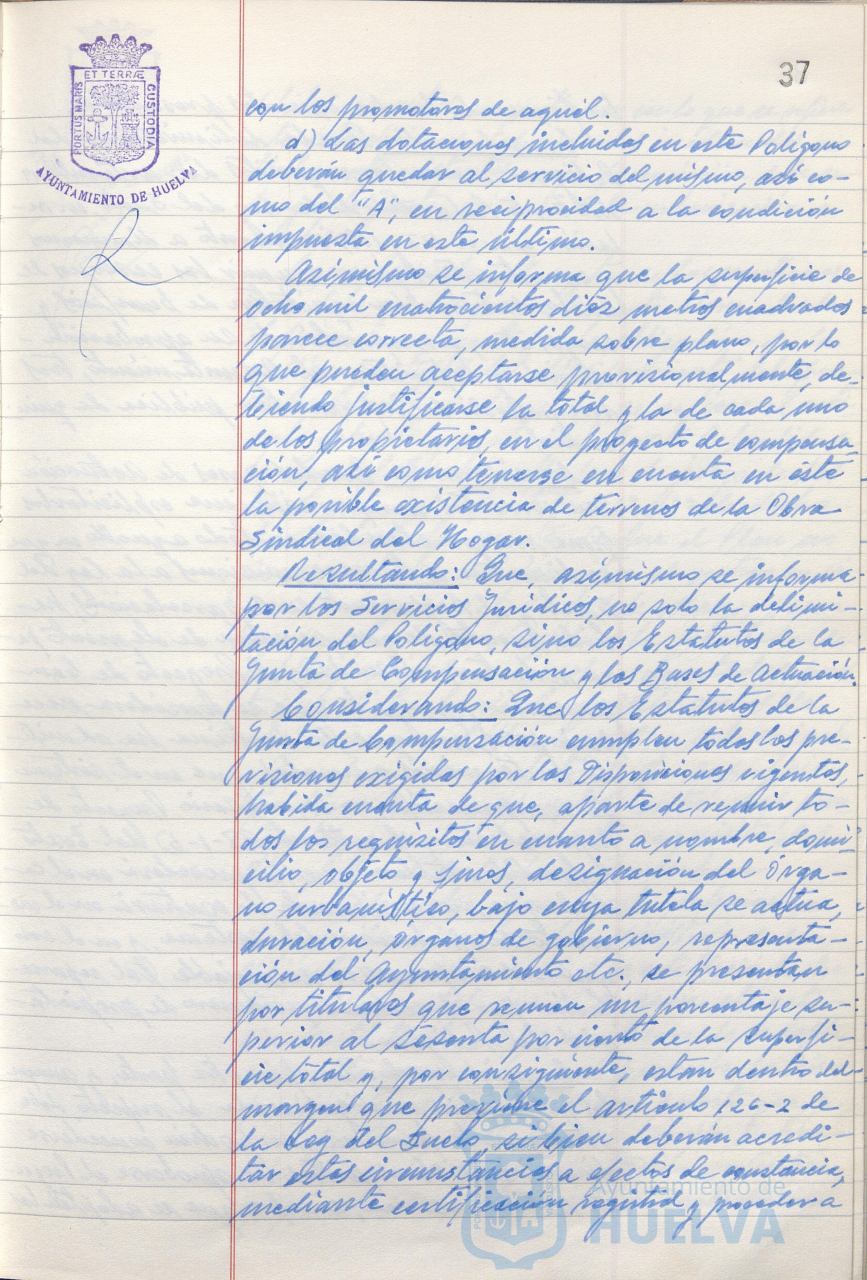 37
PORTUS MARIS ET TERRÆ CUSTODIA
AYUNTAMIENTO DE HUELVA
con los promotores de aquél.
d) Las dotaciones incluidas en este Polígono
deberán quedar al servicio del mismo, así co-
mo del "A", en reciprocidad a la condición
impuesta en este último.
Asimismo se informa que la superficie de
ocho mil cuatrocientos diez metros cuadrados
parece correcta, medida sobre plano, por lo
que pueden aceptarse provisionalmente, de-
biendo justificarse la total y la de cada uno
de los propietarios, en el proyecto de compensa-
ción, así como tenerse en cuenta en éste
la posible existencia de terrenos de la Obra
Sindical del Hogar.
Resultando: Que, asimismo se informa
por los Servicios Jurídicos, no solo la delimi-
tación del Polígono, sino los Estatutos de la
Junta de Compensación y las Bases de Actuación.
Considerando: Que los Estatutos de la
Junta de Compensación cumplen todas las pre-
visiones exigidas por las Disposiciones vigentes,
habida cuenta de que, aparte de reunir to-
dos los requisitos en cuanto a nombre, domi-
cilio, objeto y fines, designación del Órga-
no urbanístico, bajo cuya tutela se actua,
duración, órganos de gobierno, representa-
ción del Ayuntamiento etc., se presentan
por titulares que reunen un porcentaje su-
perior al sesenta por ciento de la superfi-
cie total y, por consiguiente, estan dentro del
margen que previene el artículo 126-2 de
la Ley del Suelo, si bien deberán acredi-
tar estas circunstancias a efectos de constancia,
mediante certificación registral y proceder a
Ayuntamiento de
HUELVA